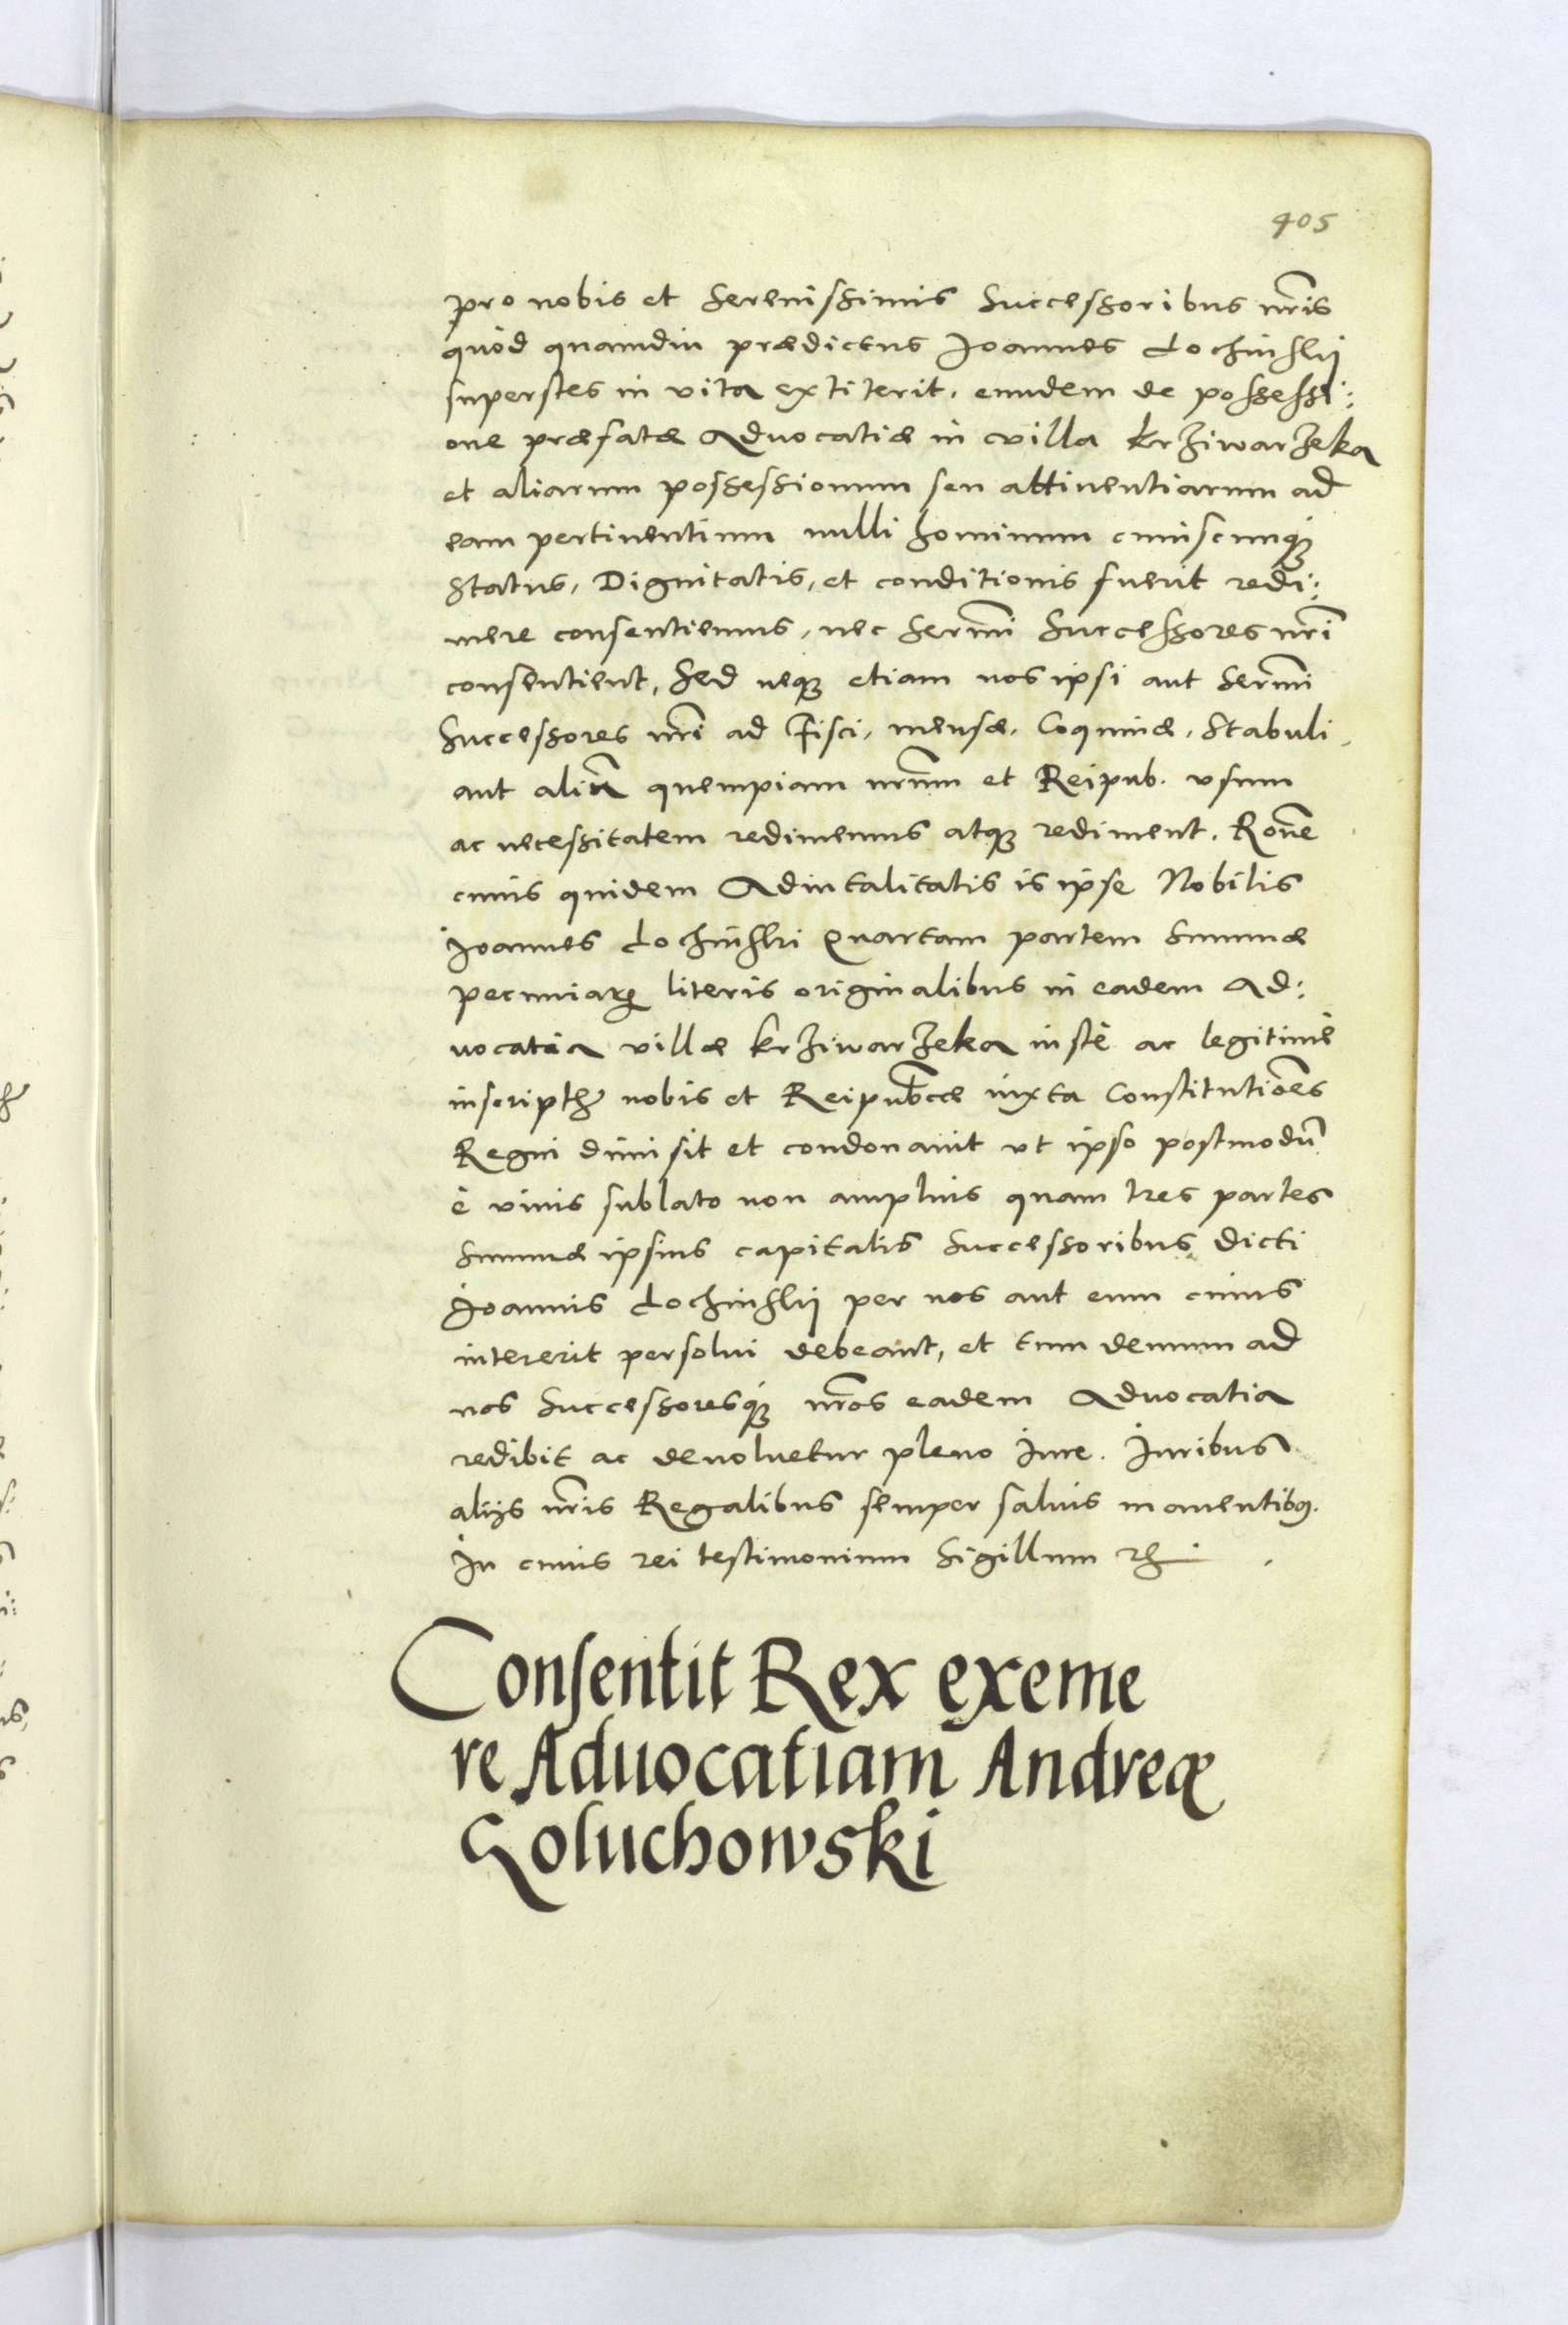 405
pro nobis et Serenissimis Successoribus nr̃is
quòd quamdiu prædictus Joannes Lochinskij
superstes in vita extiterit, eundem de possessi:
one præfatæ Aduocatiæ in villa Krziwarzeka
et aliarum possessionum seu attinentiarum ad
eam pertinentium nulli hominum cuiuscunq́ꝫ
Status, Dignitatis, et conditionis fuerit redi:
mere consentiemus, nec Serm̃i Successores nr̃i
consentient, Sed neqꝫ etiam nos ipsi aut Serm̃i
Successores nr̃i ad Fisci, mensæ, Coquinæ, Stabuli,
aut aliũ quempiam nr̃um et Reipub. vsum
ac necessitatem redimemus atqꝫ rediment. Rõne
cuius quidem Aduitalitatis is ipse Nobilis
Joannes Lochinski Quartam partem Summæ
pecuniarꝝ literis originalibus in eadem Ad:
uocatia villæ Krziwarzeka iustè ac legitimè
inscriptꝝ nobis et Reipub̃cæ iuxta Constitutiões
Regni dimisit et condonauit vt ipso postmodũ
è viuis sublato non amplius quam tres partes
Summæ ipsius capitalis Successoribus dicti
Joannis Lochinskij per nos aut eum cuius
intererit persolui debeant, et tum demum ad
nos Successoresq́ꝫ nr̃os eadem Aduocatia
redibit ac deuoluetur pleno Jure. Juribus
alijs nr̃is Regalibus semper saluis manentibꝰ.
In cuius rei testimonium Sigillum ꝛc̃.
Consentit Rex exeme
re Aduocatiam Andreæ
Goluchowski